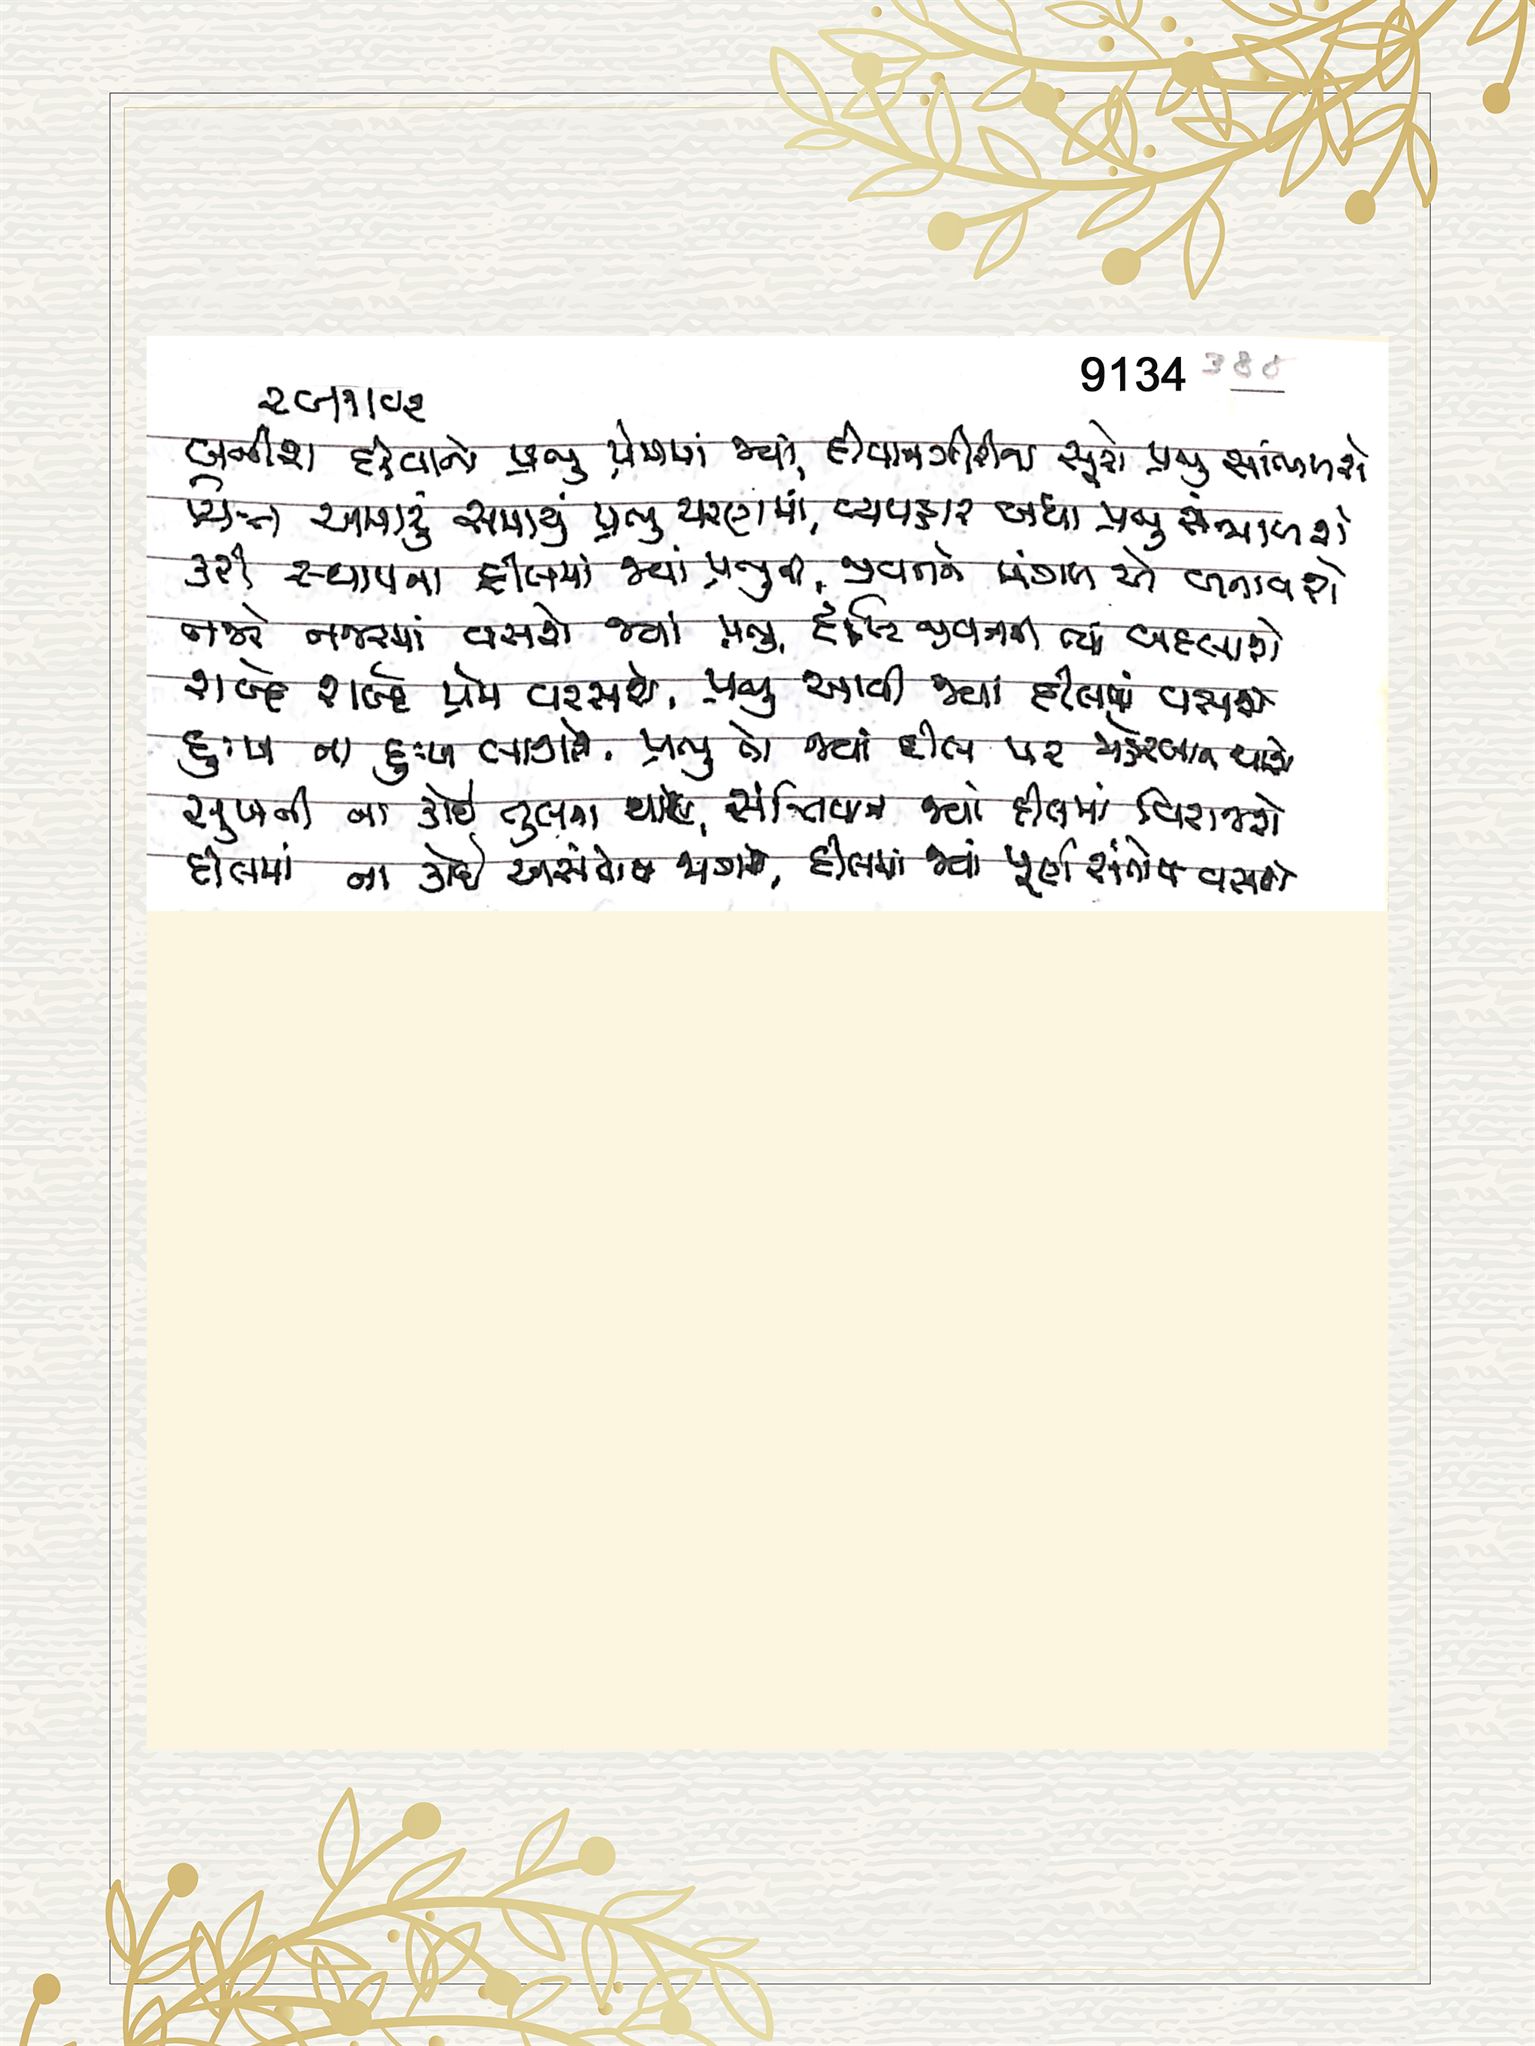 9134 ૩૪૪
બનીશ દીવાનો પ્રભુ પ્રેમમાં જ્યાં, દીવાનગીરીના સૂરો પ્રભુ સાંભળશે
ચિત્ત આખારું સમાયું પ્રભુ ચરણમાં, વ્યવહાર બધા પ્રભુ સંભાળશે
કરી સ્થાપના દીલમાં જ્યાં પ્રભુની, જીવનને મંગળ એ બનાવશે
નજરે નજરમાં વસશે જ્યાં પ્રભુ, દૃષ્ટિ જીવનની ત્યાં બદલાશે
શબ્દે શબ્દે પ્રેમ વરસશે, પ્રભુ આવી જ્યાં દીલમાં વસશે
દુઃખ ના દુઃખ લાગશે, પ્રભુ તો જ્યાં દીલ પર મહેરબાન થાશે
સુખની ના કોઈ તુલના થાશે, જ્યાં દીલમાં બિરાજશે
દીલમાં ના કોઈ અસંતોષ જાગશે, દીલમાં જ્યાં પૂર્ણ સંતોષ વસશે